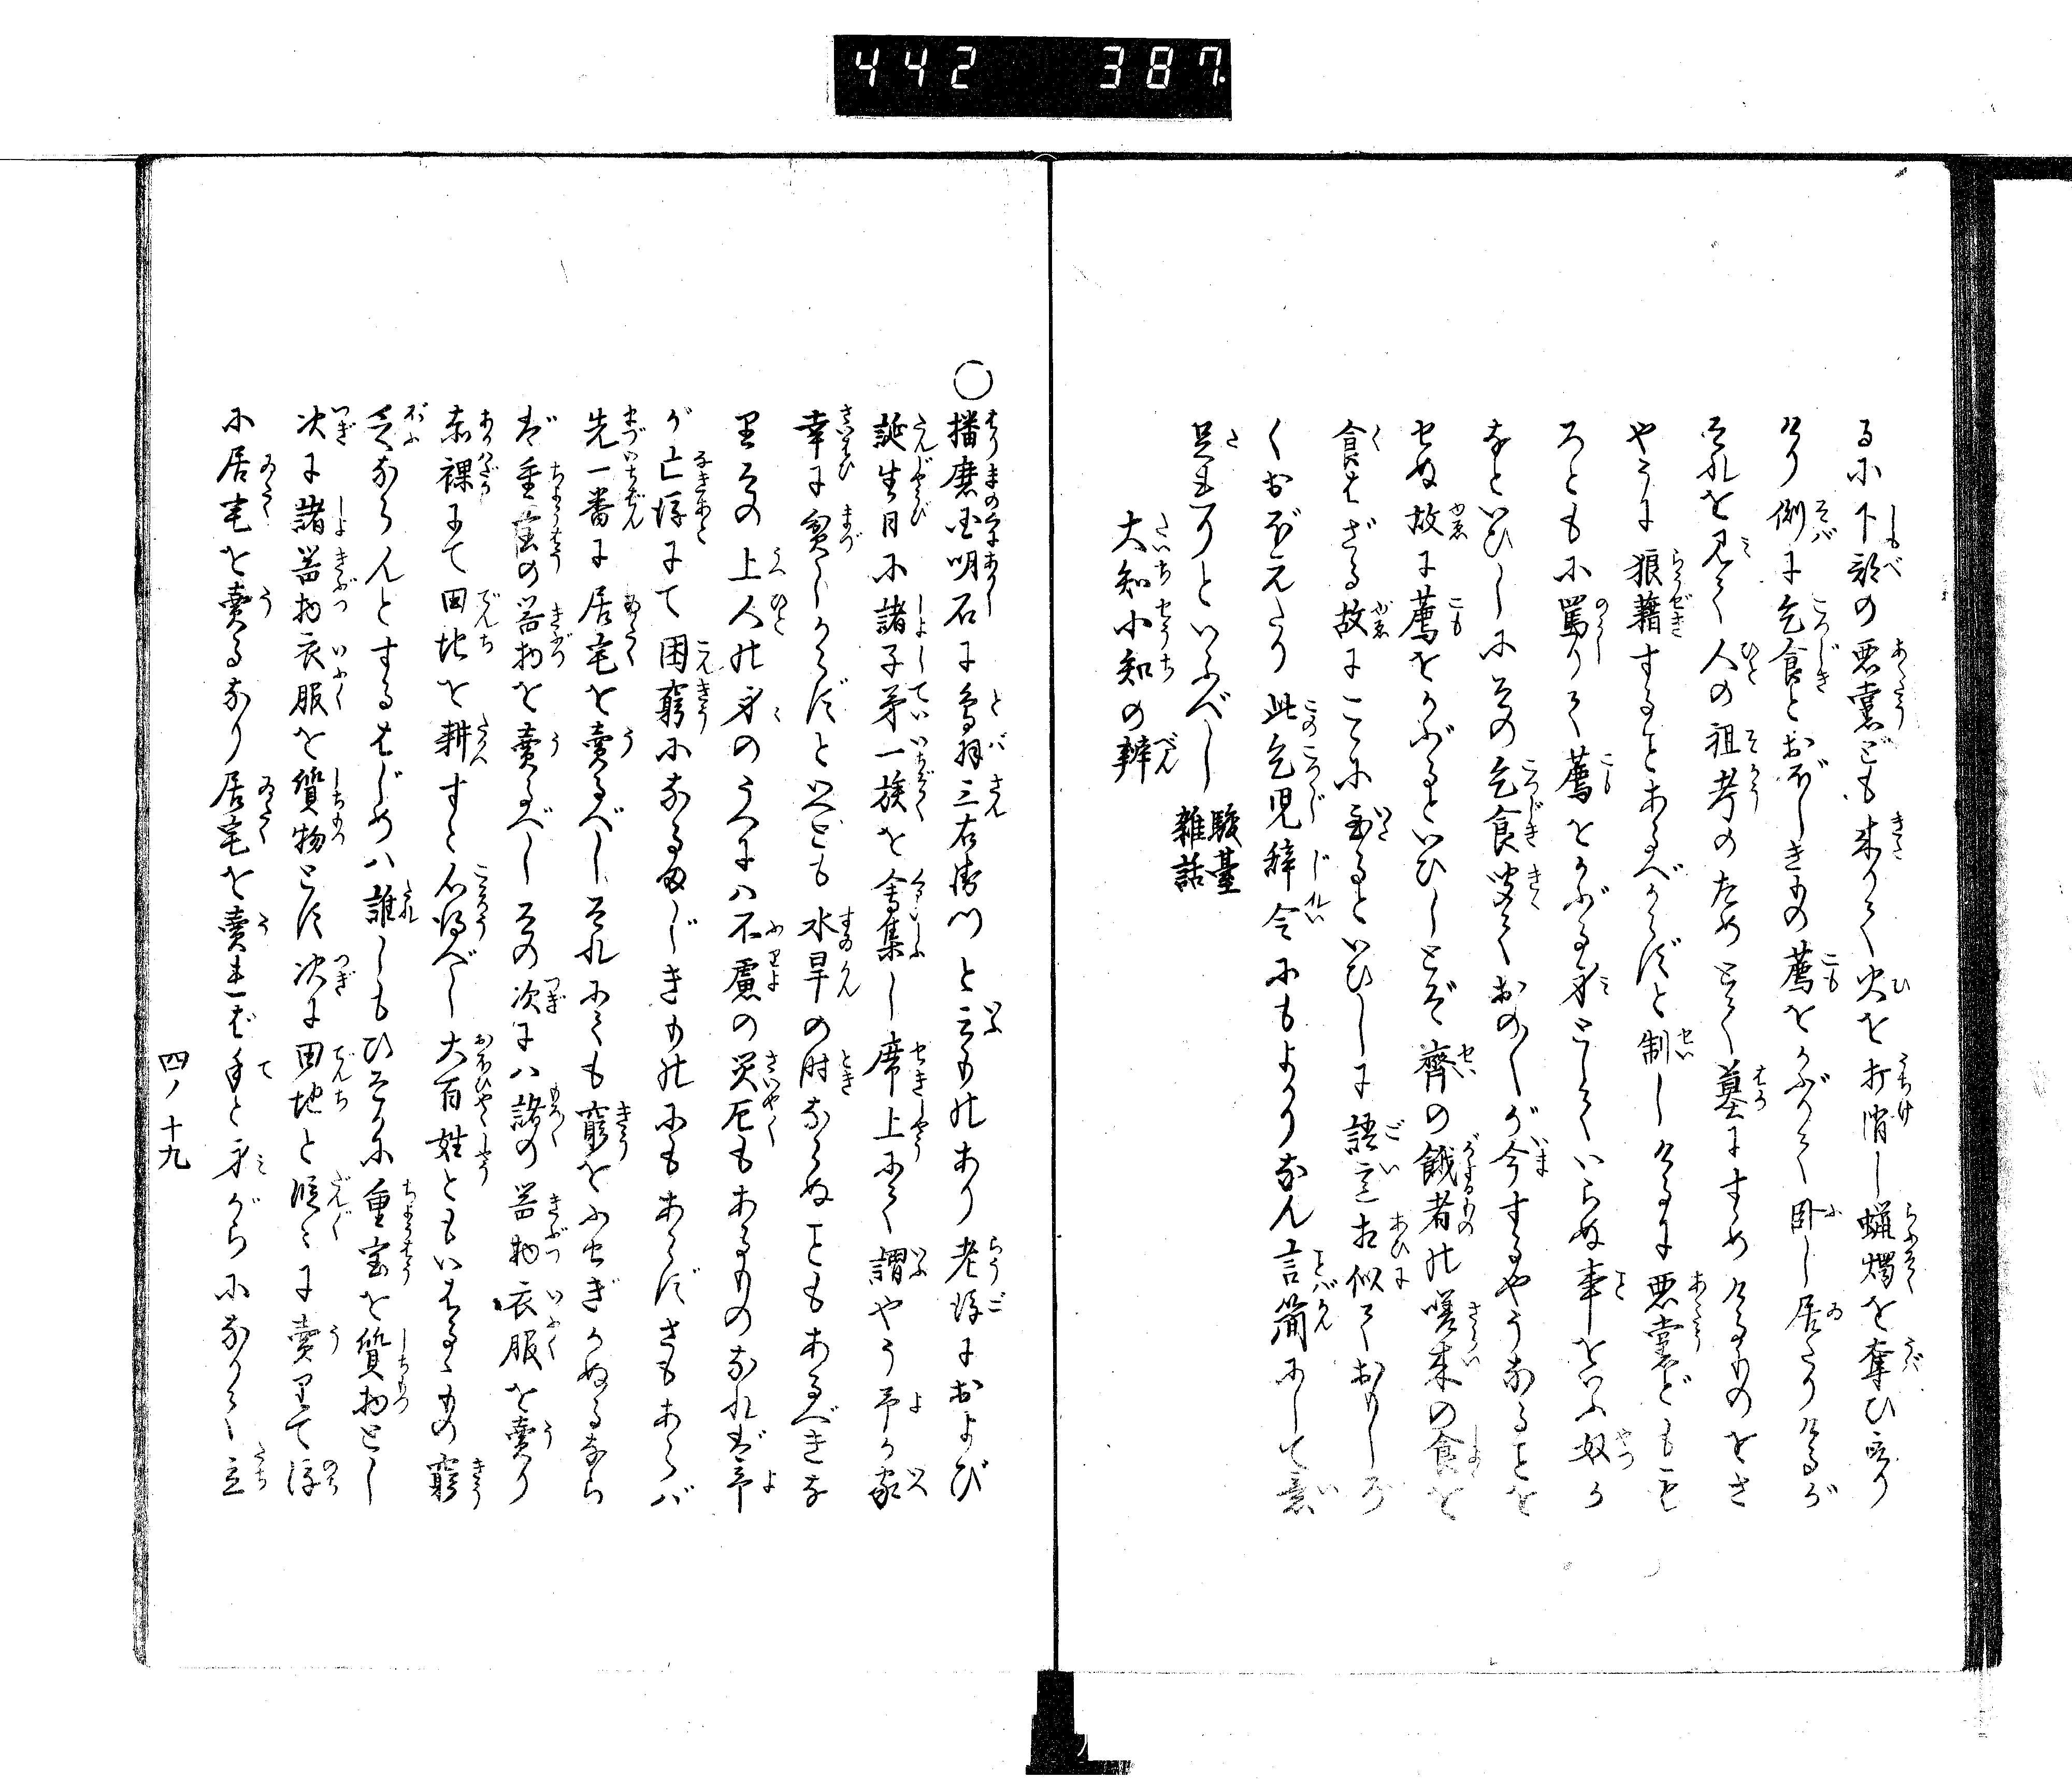 442 387
るに下部の悪党ども来りて火を打消し蝋燭を奪ひ取り
けり側に乞食とおぼしきもの薦をかぶりて臥し居たりけるが
それを見て人の祖考のためとて墓にすゝめけるものをさ
やうに狼藉することあるべからずと制しけるに悪党どもも
ろともに罵りて薦をかぶる身としていらぬ事をいふ奴か
なといひしにその乞食聞ておのしが今するやうなることを
せぬ故に薦をかぶるといひしとぞ齊の餓者の嗟来の食を
食はざる故にこゝに至るといひしに語意相似ておもしろ
くおぼえたり此乞児辞令にもよりなん言簡にして意
足れりといふべし
駿臺
雑話
大知小知の辨
○播磨国明石に鳥羽三右衛門と云ものあり老後におよび
誕生日に諸子弟一族を会集し席上にて謂やう予が家
幸に貧しからずといへども水旱の時ならぬこともあるべきな
りその上人の身のうへには不慮の災厄もあるものなれば予
が亡後にて困窮になるまじきものにもあらずさもあらば
先一番に居宅を賣るべしそれにても窮をふせぎかぬるなら
ば重宝の器物を賣るべしその次には諸の器物衣服を賣り
赤裸にて田地を耕すと心得べし大百姓ともいはるゝもの窮
乏ならんとするはじめハ誰しもひそかに重宝を質物とし
次に諸器物衣服を質物とし次に田地と段々に賣りて後
に居宅を賣るなり居宅を賣れば手と身がらになりて立
四ノ十九